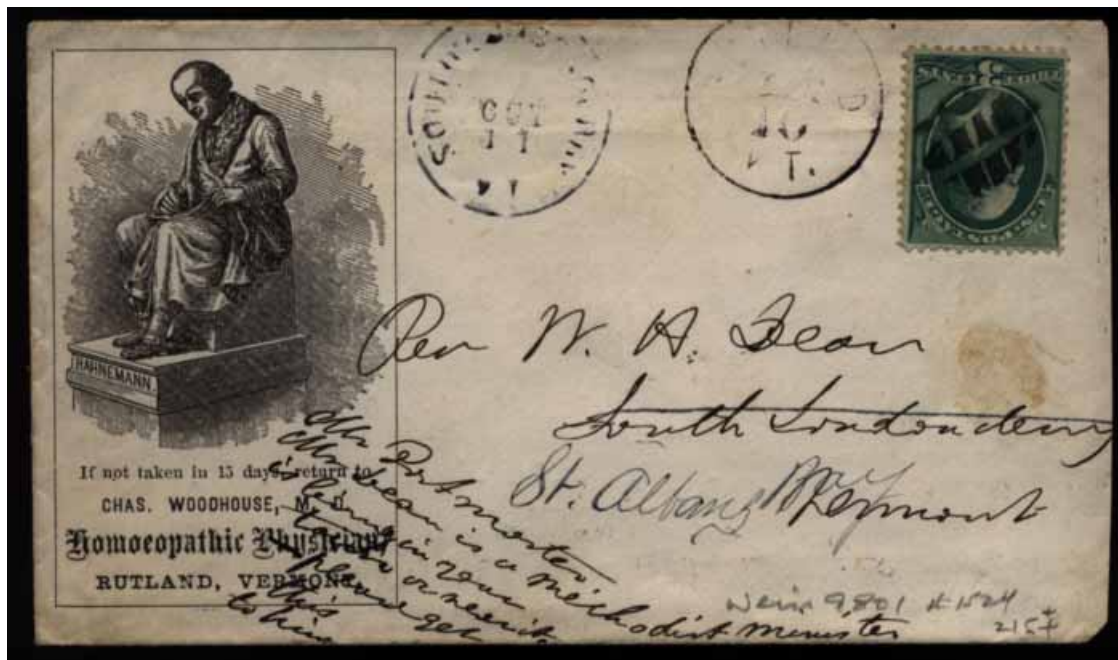 HAHNEMANN.
If not taken in 15 days, return to
CHAS. WOODHOUSE, M. D.
Homoeopathic Physician,
RUTLAND, VERMONT.
SOUTH
OCT
11
VT
10
VT.
THREE CENTS
3
U.S. POSTAGE
Rev W. H. Dean
South Londonderry
St. Albans Bay
Vermont
Mr Postmaster
Mr Dean is a Methodist Minister
is being in your
or near it
please get
this
to him
9,801
215